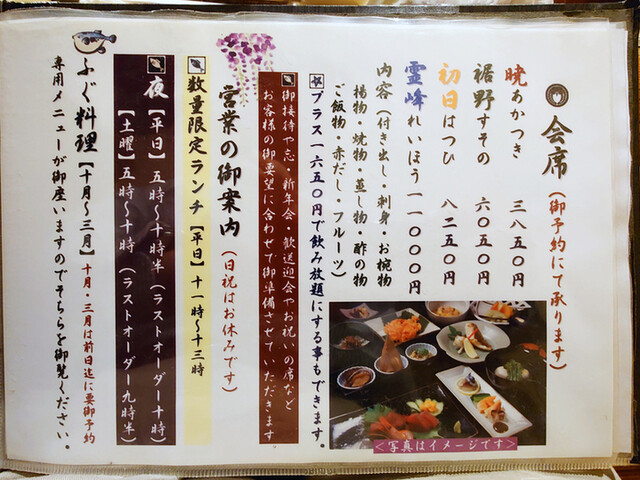 会席（御予約にて承ります）
暁あかつき 三八五〇円
裾野すその 六〇五〇円
初日はつひ 八二五〇円
霊峰れいほう 一一〇〇〇円
内容（付き出し・刺身・お椀物
揚物・焼物・蒸し物・酢の物
ご飯物・赤だし・フルーツ）
プラス一六五〇円で飲み放題にする事もできます。
＜写真はイメージです＞
御接待や忘・新年会・歓送迎会やお祝いの席など
お客様の御要望に合わせて御準備させていただきます
営業の御案内（日祝はお休みです）
数量限定ランチ【平日】十一時〜十三時
夜【平日】五時〜十時半（ラストオーダー十時）
【土曜】五時〜十時（ラストオーダー九時半）
ふぐ料理【十月〜三月】十月・三月は前日迄に要御予約
専用メニューが御座いますのでそちらを御覧ください。